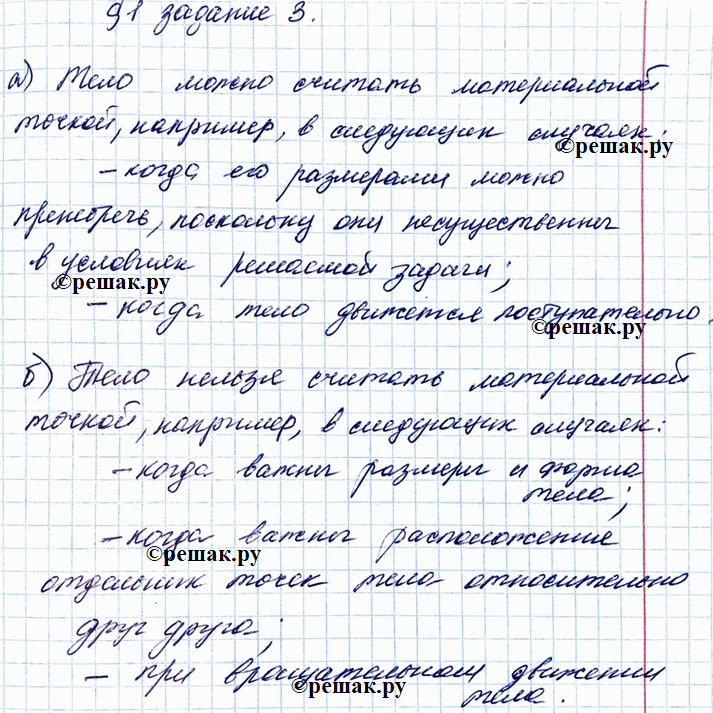 §1 задание 3.
а) Тело можно считать материальной
точкой, например, в следующих случаях:
©решак.ру
– когда его размерами можно
пренебречь, поскольку они несущественны
в условиях решаемой задачи;
©решак.ру
– когда тело движется поступательно.
©решак.ру
б) Тело нельзя считать материальной
точкой, например, в следующих случаях:
– когда важны размеры и форма
тела;
– когда важны расположение
©решак.ру
отдельных точек тела относительно
друг друга;
– при вращательном движении
©решак.ру
тела.